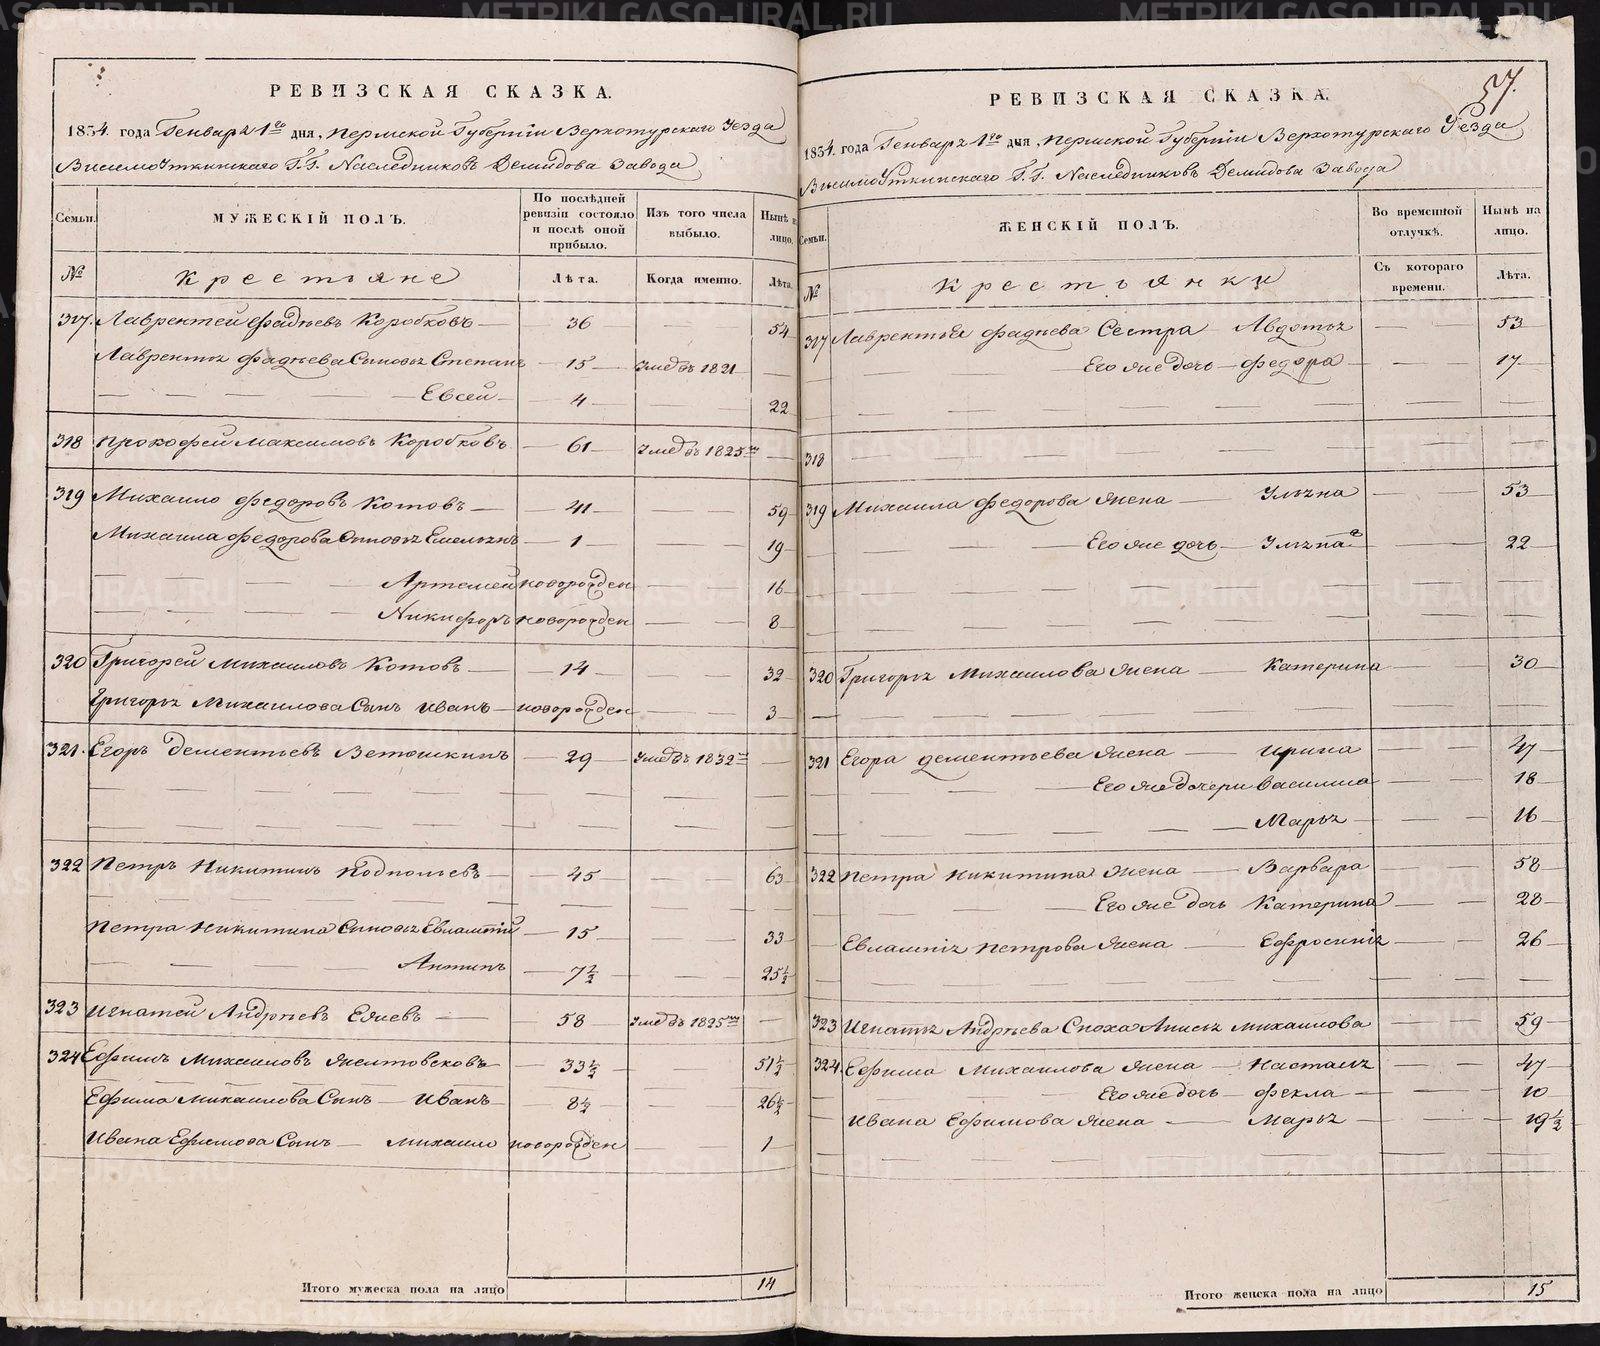 РЕВИЗСКАЯ СКАЗКА.
1834. года Генваря 1го дня, Пермской Губернiи Верхотурскаго Уезда
ВисимоУткинскаго Г.Г. Наследниковъ Демидова Завода
Семьи.
МУЖЕСКIЙ ПОЛЪ.
По послѣдней ревизiи состояло и послѣ оной прибыло.
Изъ того числа выбыло.
Нынѣ на лицо.
№
Крестьяне
Лѣта.
Когда именно.
Лѣта.
317. Лаврентей Фадѣевъ Коробковъ 36 54
Лаврентья Фадѣева Сыновья Степанъ 15 Умеръ 1821
Евсей 4 22
318 Прокофей Максимовъ Коробковъ 61 Умеръ 1825
319 Михаило Федоровъ Котовъ 41 59
Михаила Федорова Сыновья Емельянъ 1 19
Артемей новорожден 16
Никифоръ новорожден 8
320 Григорей Михаиловъ Котовъ 14 32
Григорья Михаилова Сынъ Иванъ новорожден 3
321. Егоръ Дементьевъ Ветошкинъ 29 Умеръ 1832
322 Петръ Никитинъ 45 63
Петра Никитина Сыновья Евлампiй 15 33
Антипъ 7½ 25½
323 Игнатей Андрѣевъ Ежевъ 58 Умеръ 1825
324 Ефимъ Михаиловъ Желтовсковъ 33½ 51½
Ефима Михаилова Сынъ Иванъ 8½ 26½
Ивана Ефимова Сынъ Михаило новорожден 1
Итого мужеска пола на лицо 14
57.
РЕВИЗСКАЯ СКАЗКА.
1834. года Генваря 1го дня, Пермской Губернiи Верхотурскаго Уезда
ВисимоУткинскаго Г.Г. Наследниковъ Демидова Завода
Семьи.
ЖЕНСКIЙ ПОЛЪ.
Во временной отлучкѣ.
Нынѣ на лицо.
№
Крестьянки
Съ котораго времени.
Лѣта.
317 Лаврентья Фадѣева Сестра Авдотья 53
Его же дочь Федора 17
318
319 Михаила Федорова жена Ульяна 53
Его же дочь Ульяна 22
320 Григорья Михаилова жена Катерина 30
321 Егора Дементьева жена Ирина 47
Его же дочери Василиса 18
Марья 16
322 Петра Никитина жена Варвара 58
Его же дочь Катерина 28
Евлампiя Петрова жена Ефросинiя 26
323 Игнатья Андрѣева Сноха Анисья Михаилова 59
324. Ефима Михаилова жена Настасья 47
Его же дочь Фекла 10
Ивана Ефимова жена Марья 19½
Итого женска пола на лицо 15
METRIKI.GASO-URAL.RU